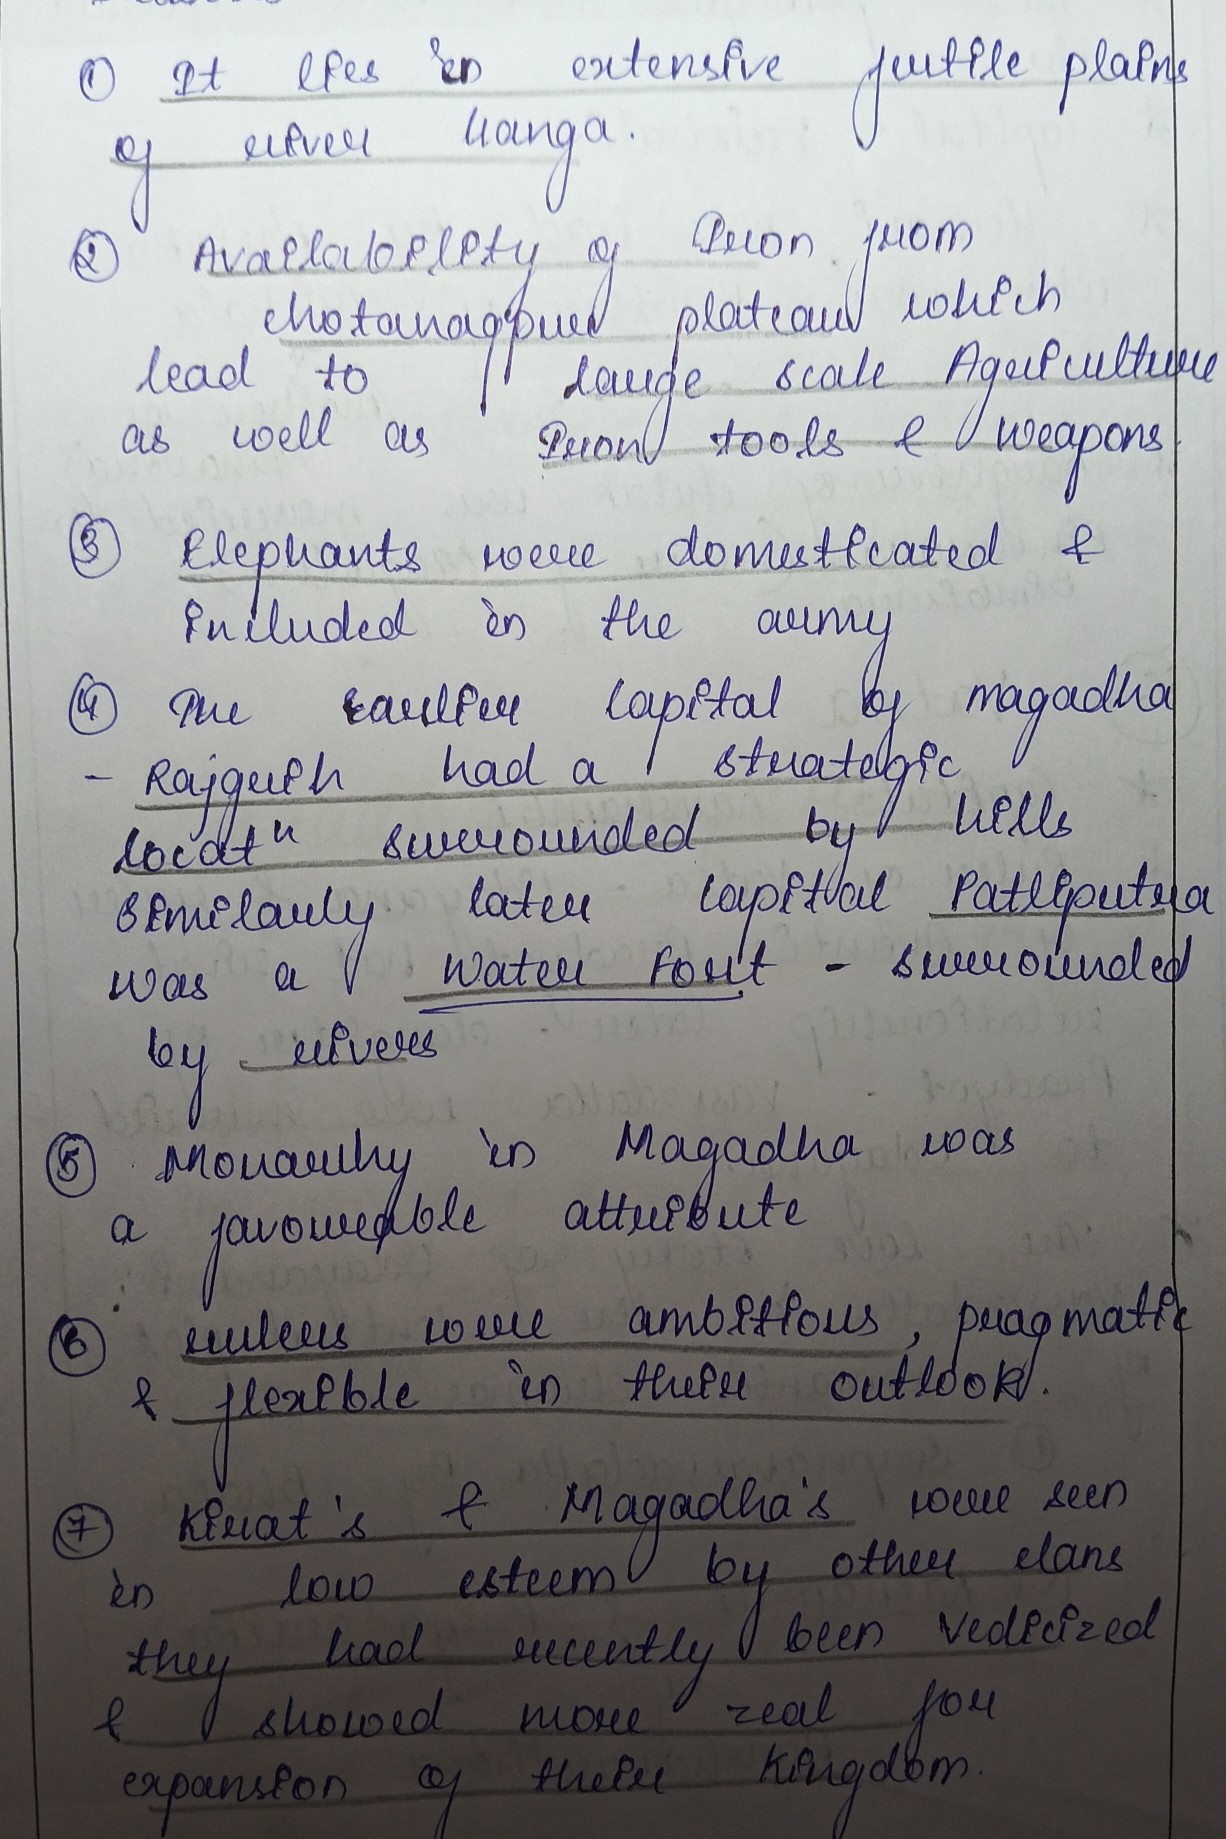 ① It lies in extensive fertile plains
of river Ganga.
② Availability of Iron from
chotanagpur plateau which
lead to large scale Agriculture
as well as Iron tools & weapons.
③ Elephants were domesticated &
included in the army
④ The earlier capital of magadha
- Rajgrih had a strategic
locatⁿ surrounded by hills
similarly later capital Patliputra
was a water Fort - surrounded
by rivers
⑤ Monarchy in Magadha was
a favourable attribute
⑥ rulers were ambitious, pragmatic
& flexible in their outlook.
⑦ Kirat's & Magadha's were seen
in low esteem by other clans
they had recently been vedicized
& showed more zeal for
expansion of their kingdom.